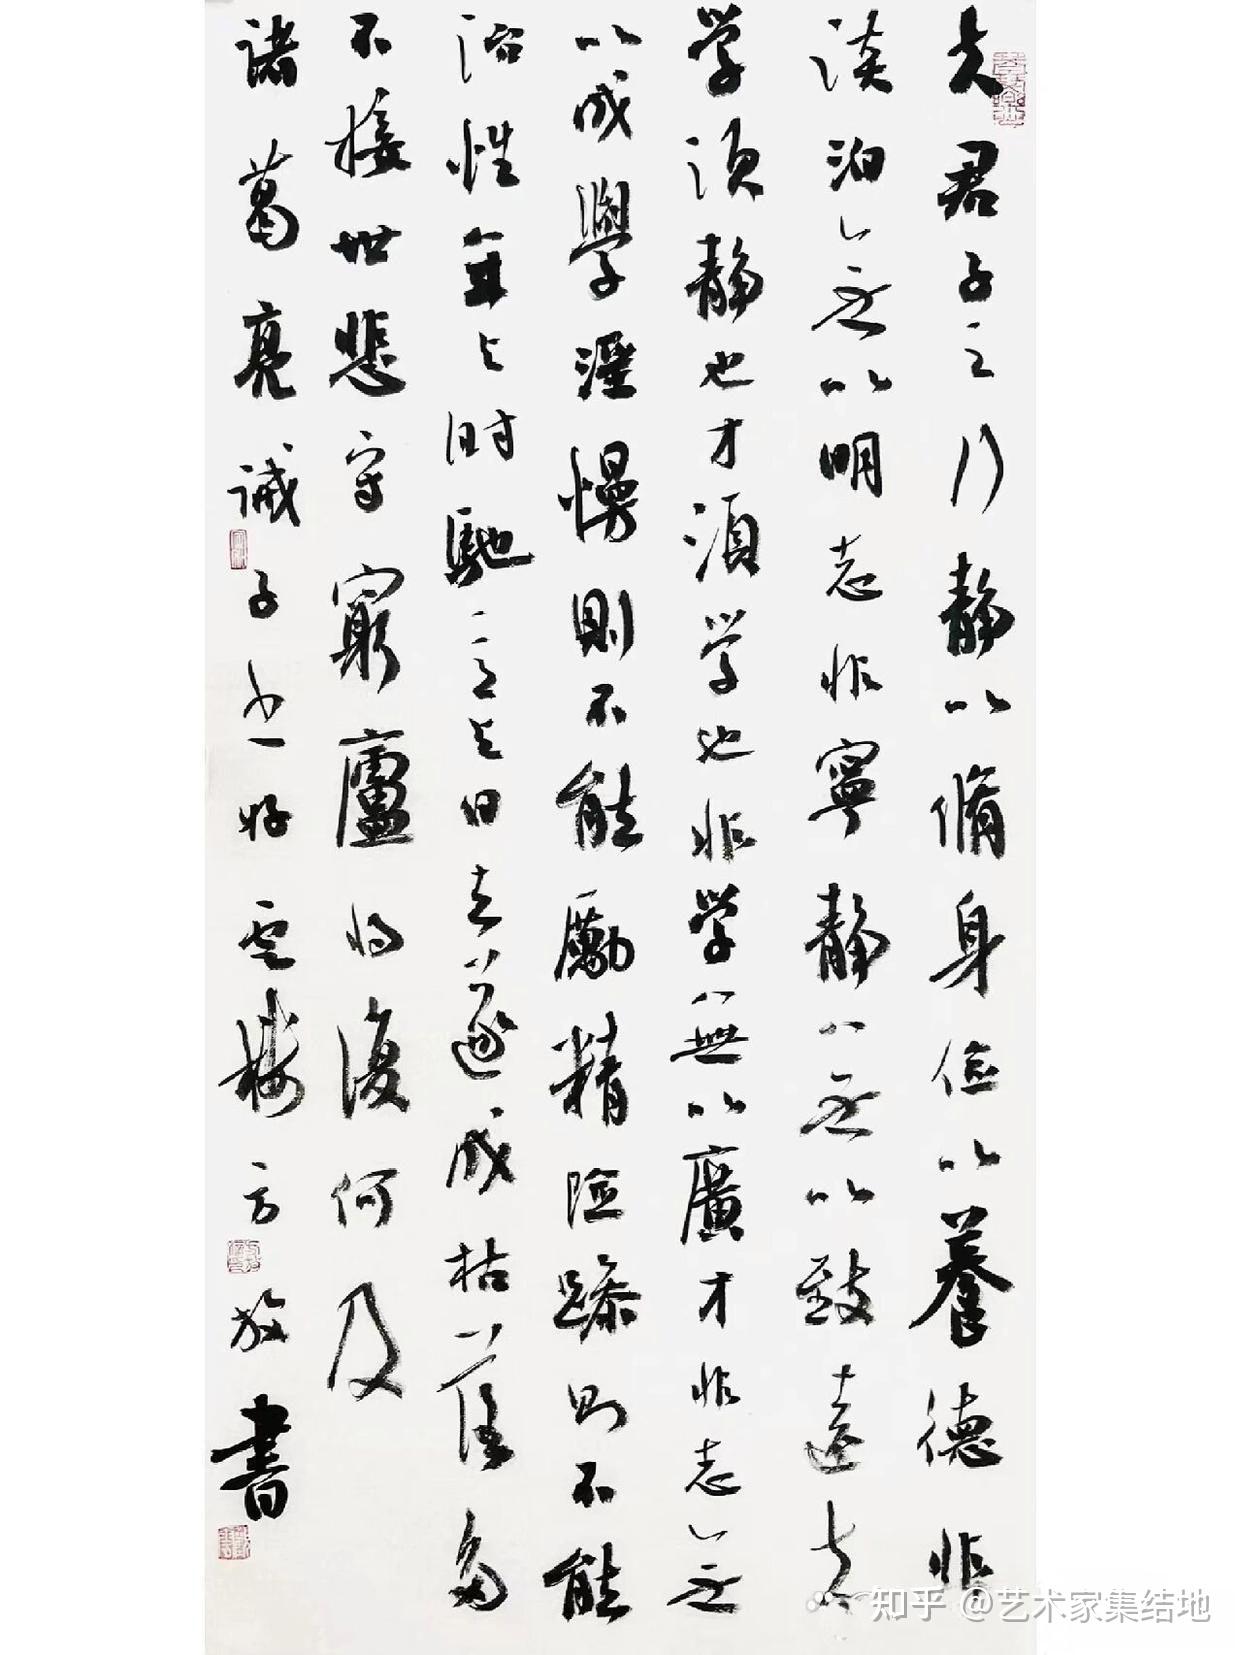 夫君子之行静以脩身俭以養德非
淡泊無以明志非寧静無以致遠夫
学須静也才須学也非学無以廣才非志無
以成學淫慢則不能勵精险躁则不能
治性年与时馳意与日去遂成枯落多
不接世悲守窮廬将復何及
諸葛亮诫子书好雲樓方放書
知乎 @艺术家集结地